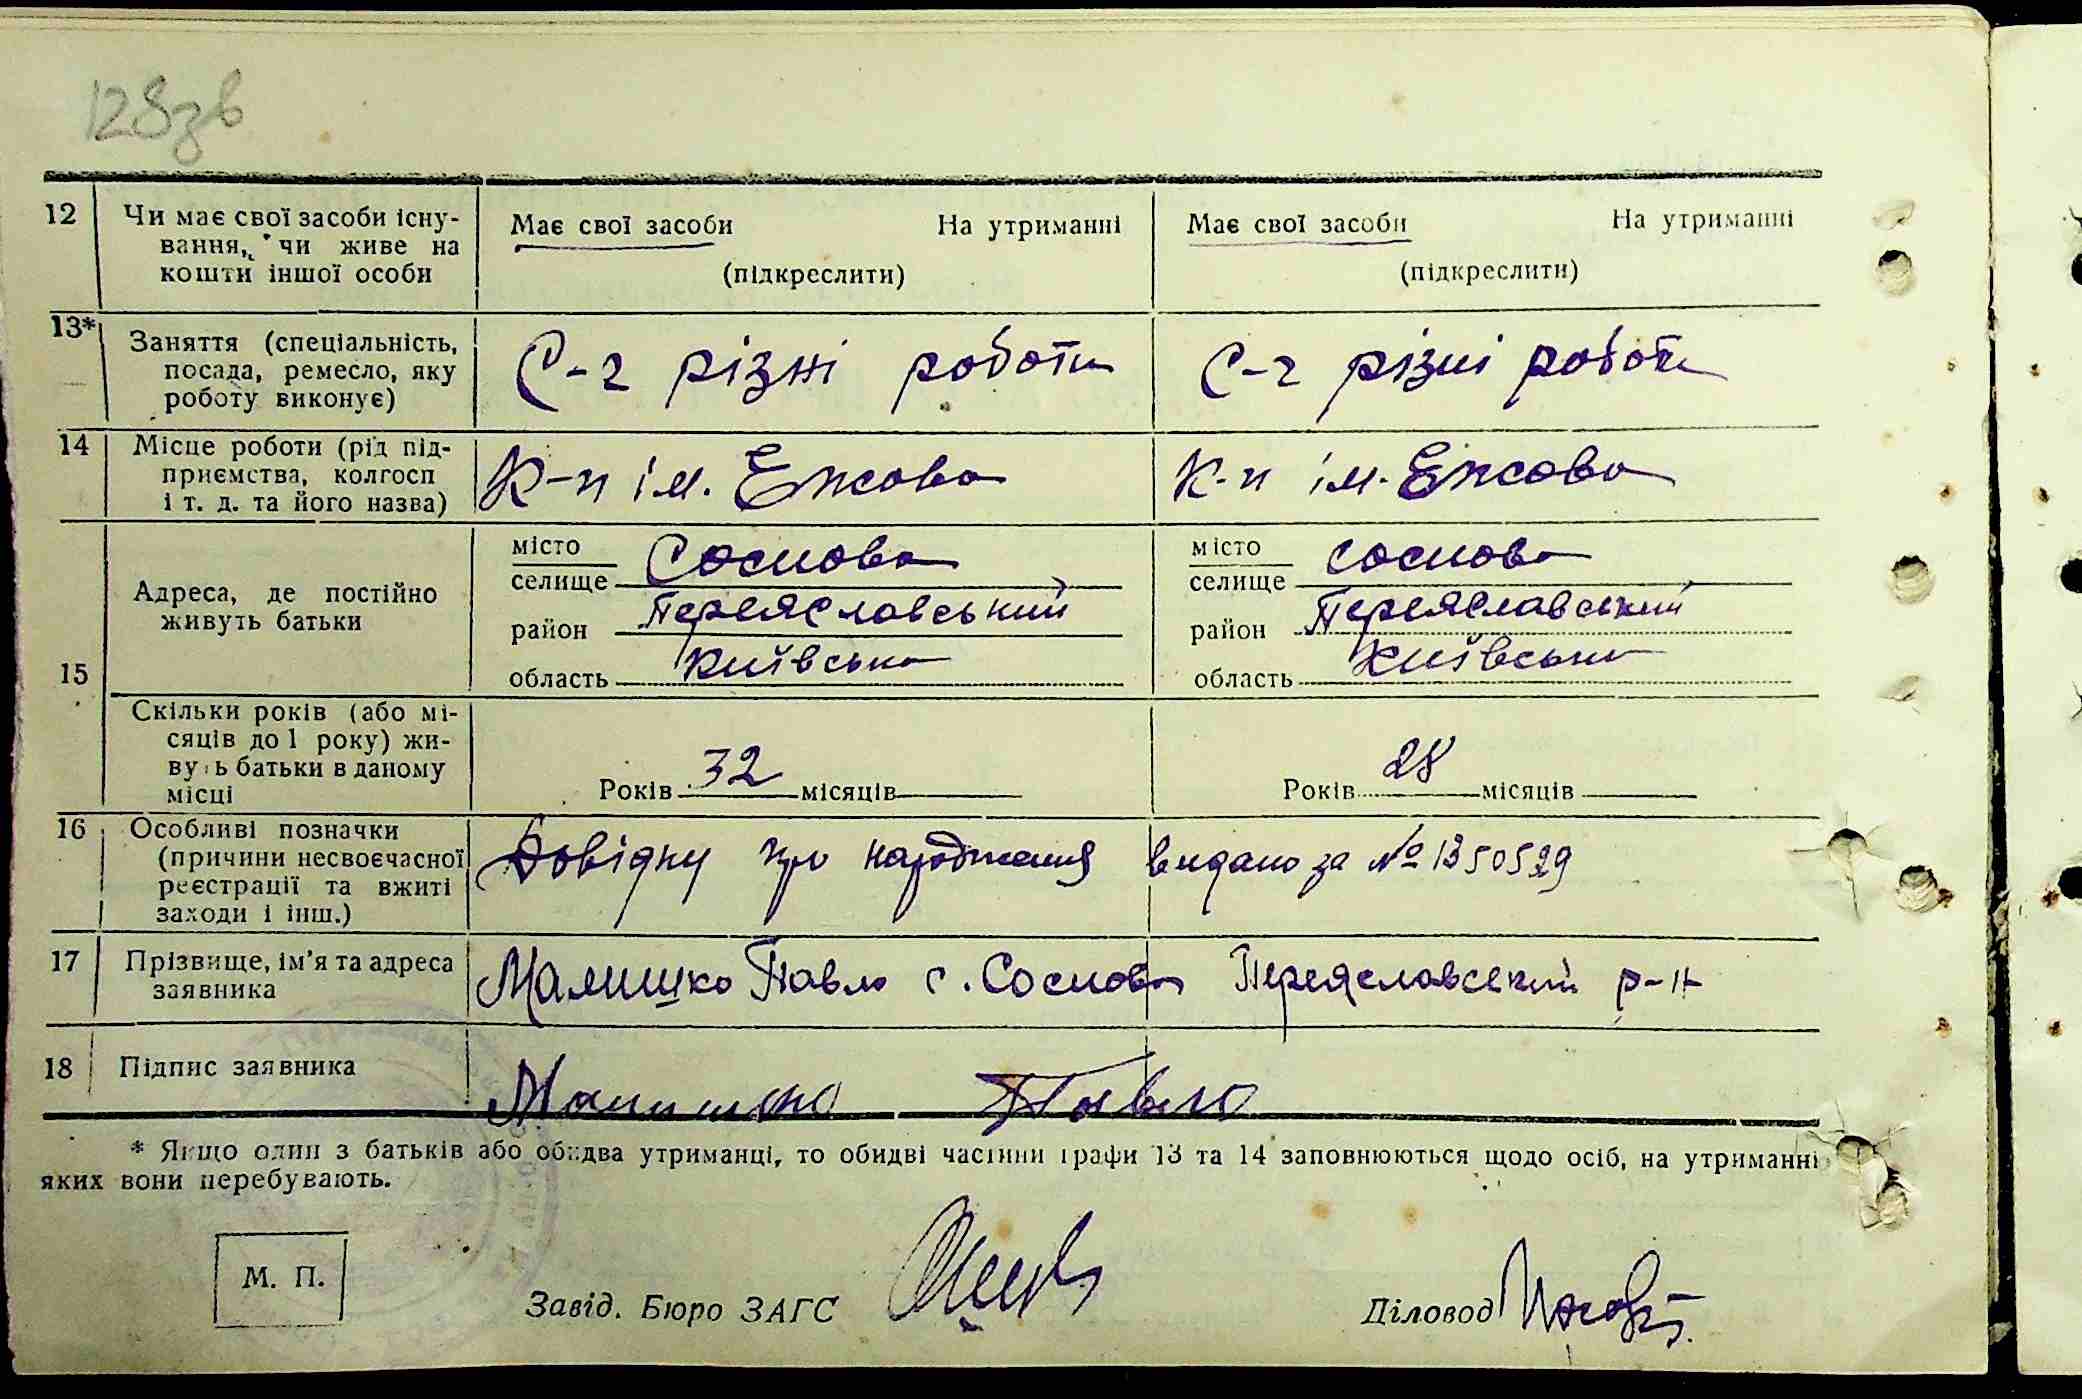 128зв
12 Чи має свої засоби існу-
вання, чи живе на
кошти іншої особи
Має свої засоби На утриманні
(підкреслити)
Має свої засоби На утриманні
(підкреслити)
13* Заняття (спеціальність,
посада, ремесло, яку
роботу виконує)
С-г різні роботи
С-г різні роботи
14 Місце роботи (рід під-
приємства, колгосп
і т. д. та його назва)
К-п ім. Єжова
К-п ім. Єжова
15 Адреса, де постійно
живуть батьки
місто
селище Соснова
район Переяславський
область Київська
місто
селище Соснова
район Переяславський
область Київська
Скільки років (або мі-
сяців до 1 року) жи-
вуть батьки в даному
місці
Років 32 місяців
Років 28 місяців
16 Особливі позначки
(причини несвоєчасної
реєстрації та вжиті
заходи і інш.)
Довідку про народження видано за № 1350529
17 Прізвище, ім'я та адреса
заявника
Малишко Павло с. Соснова Переяславський р-н
18 Підпис заявника
Малишко Павло
* Якщо один з батьків або обидва утриманці, то обидві частини графи 13 та 14 заповнюються щодо осіб, на утриманні
яких вони перебувають.
М. П.
Завід. Бюро ЗАГС
Діловод